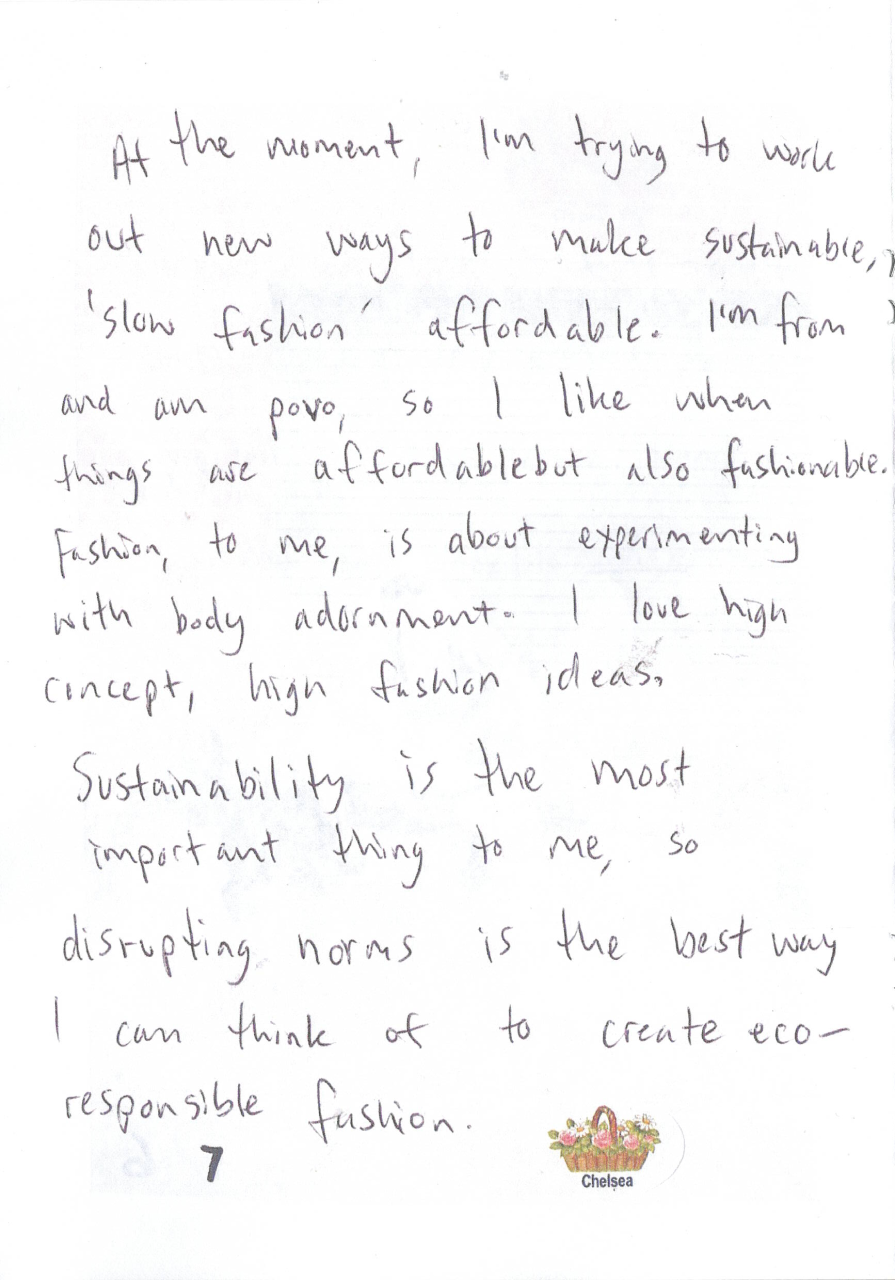 At the moment, I'm trying to work
out new ways to make sustainable,
'slow fashion' affordable. I'm from
and am povo, so I like when
things are affordablebut also fashionable.
Fashion, to me, is about experimenting
with body adornment. I love high
concept, high fashion ideas.
Sustainability is the most
important thing to me, so
disrupting norms is the best way
I can think of to create eco-
responsible fashion.
7
Chelsea